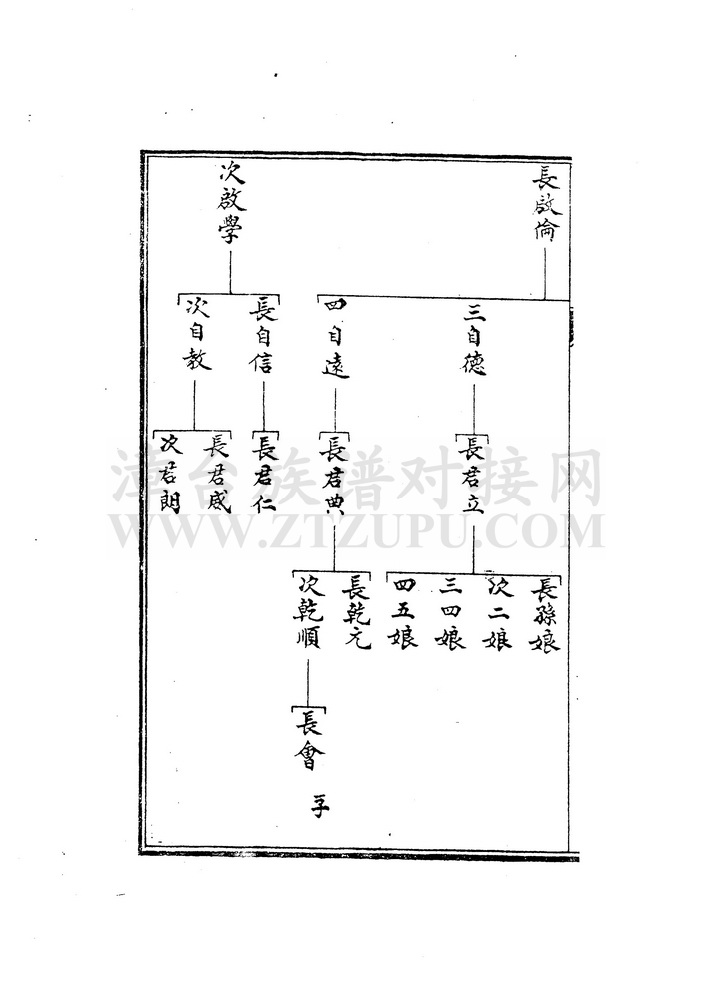 長啟倫
次啟學
三自德
四自遠
長自信
次自教
長君立
長君典
長君仁
長君威
次君朗
長孫娘
次二娘
三四娘
四五娘
長乾元
次乾順
長會
漳台族谱对接网
WWW.ZTZUPU.COM